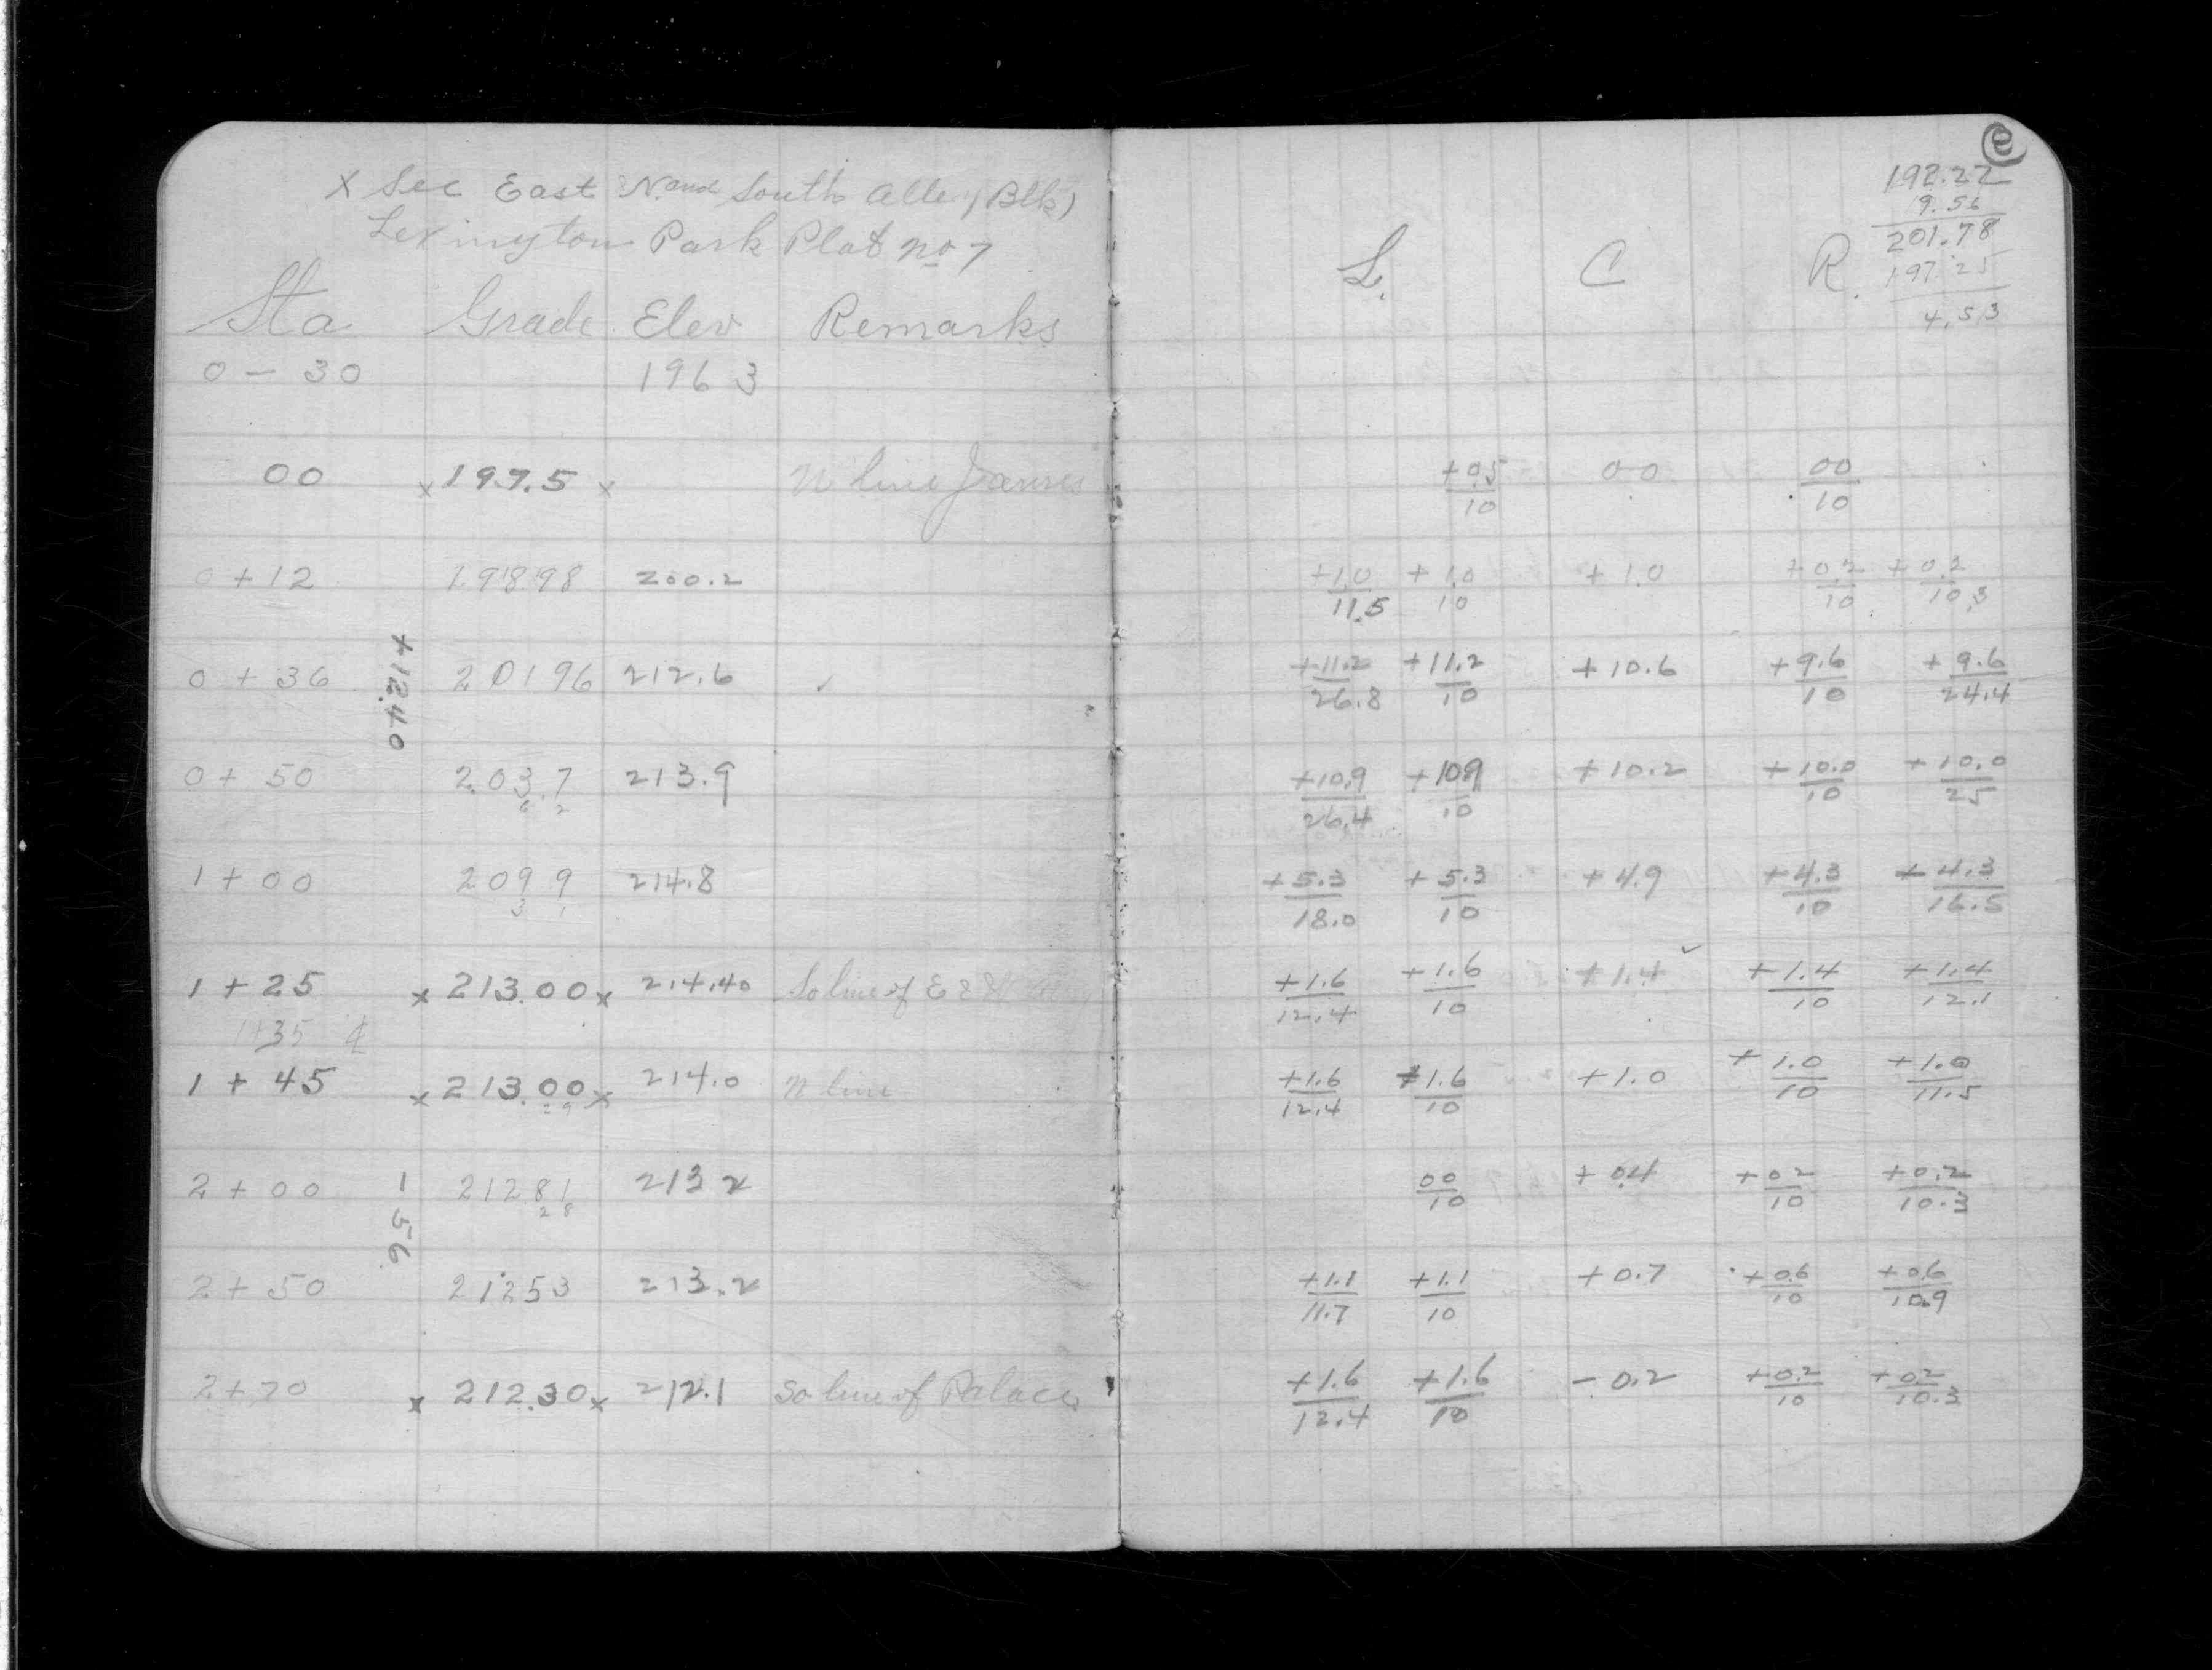 X Sec East N. and South alley Blk 1
Lexington Park Plat No 7
Sta Grade Elev Remarks
0 - 30 196 3
00 x 197.5 x N line James
0 + 12 198.98 200.2
0 + 36 201 96 212.6 ✓
+12.40
0 + 50 203.7 213.9
6 2
1 + 00 209 9 214.8
3 1
1 + 25 x 213.00 x 214.40 So line of E & W
1+35 ℄
1 + 45 x 213.00 x 214.0 N line
29
2 + 00 212 81 213 2
28
- 56
2 + 50 212 53 213.2
2 + 70 x 212.30 x 212.1 So line of Palace
192.22
9.56
201.78
197.25
4.53
L. C R.
+0.5/10 00 00/10
+1.0/11.5 +1.0/10 +1.0 +0.2/10 +0.2/10.3
+11.2/26.8 +11.2/10 +10.6 +9.6/10 +9.6/24.4
+10.9/26.4 +10.9/10 +10.2 +10.0/10 +10.0/25
+5.3/18.0 +5.3/10 +4.9 +4.3/10 +4.3/16.5
+1.6/12.4 +1.6/10 +1.4 ✓ +1.4/10 +1.4/12.1
+1.6/12.4 +1.6/10 +1.0 +1.0/10 +1.0/11.5
00/10 +0.4 +0.2/10 +0.2/10.3
+1.1/11.7 +1.1/10 +0.7 +0.6/10 +0.6/10.9
+1.6/12.4 +1.6/10 -0.2 +0.2/10 +0.2/10.3